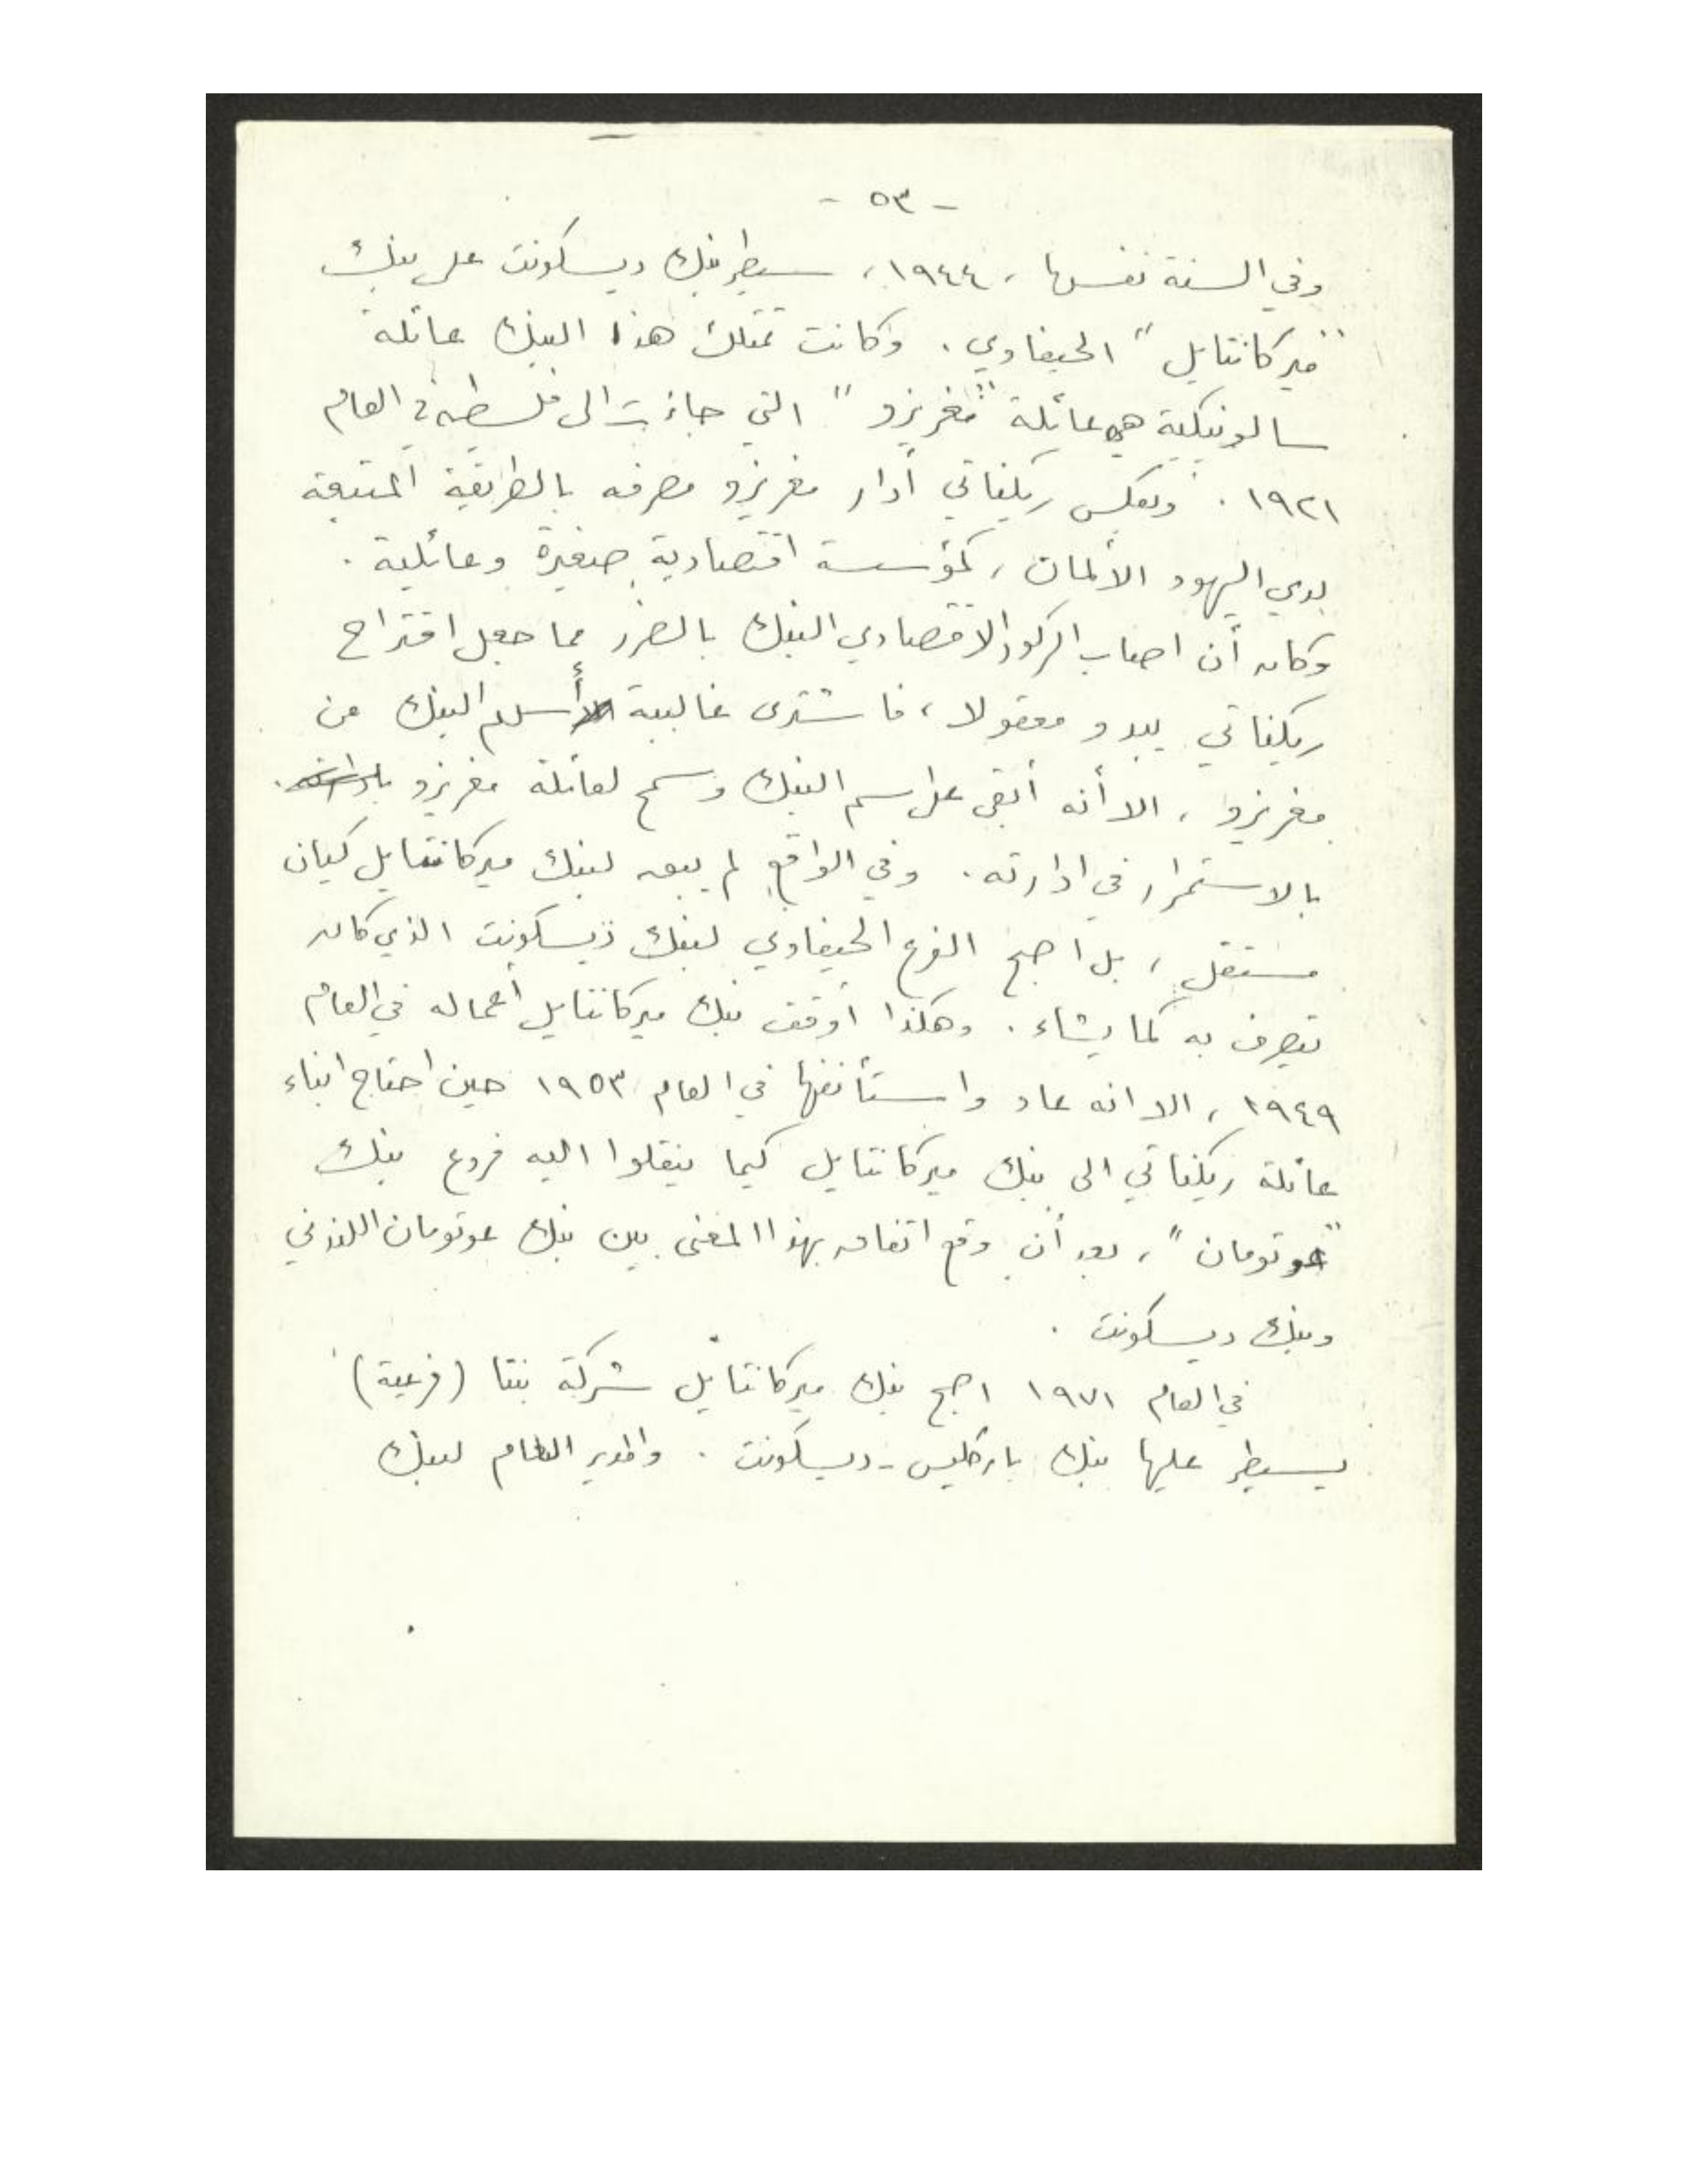 - ٥٣ -
وفي السنة نفسها ، ١٩٤٤ ، سيطر بنك ديسكونت على بنك
"ميركانتايل" الحيفاوي . وكانت تمتلك هذا البنك عائلة
سالونيكية هي عائلة "مغريزو" التي جاءت الى فلسطين في العام
١٩٢١ . وبعكس ريكناتي أدار مغريزو مصرفه بالطريقة المتبعة
لدى اليهود الألمان ، كمؤسسة اقتصادية صغيرة وعائلية .
وكان أن اصاب الركود الاقتصادي البنك بالضرر مما جعل اقتراح
ريكناتي يبدو معقولا ، فاشترى غالبية أسهم البنك من
مغريزو ، الا أنه أبقى على اسم البنك وسمح لعائلة مغريزو
بالاستمرار في ادارته . وفي الواقع لم يبق لبنك ميركانتايل كيان
مستقل ، بل اصبح الفرع الحيفاوي لبنك ديسكونت الذي كان
يتصرف به كما يشاء . وهكذا أوقف بنك ميركانتايل أعماله في العام
١٩٤٩ ، الا انه عاد واستأنفها في العام ١٩٥٣ حين احتاج ابناء
عائلة ريكناتي الى بنك ميركانتايل كيما ينقلوا اليه فروع بنك
"عوتومان" ، بعد أن وقع اتفاق بهذا المعنى بين بنك عوتومان اللندني
وبنك ديسكونت .
في العام ١٩٧١ اصبح بنك ميركانتايل شركة بنتا (فرعية)
يسيطر عليها بنك باركليس - ديسكونت . والمدير العام لبنك